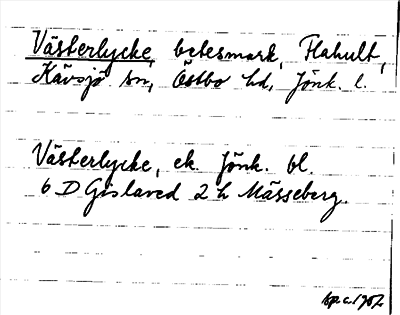 Västerlycke, betesmark, Flahult,
Kävsjö sn, Östbo hd, Jönk. l.
Västerlycke, ek. Jönk. bl.
6 D Gislaved 2 h Mässeberg.